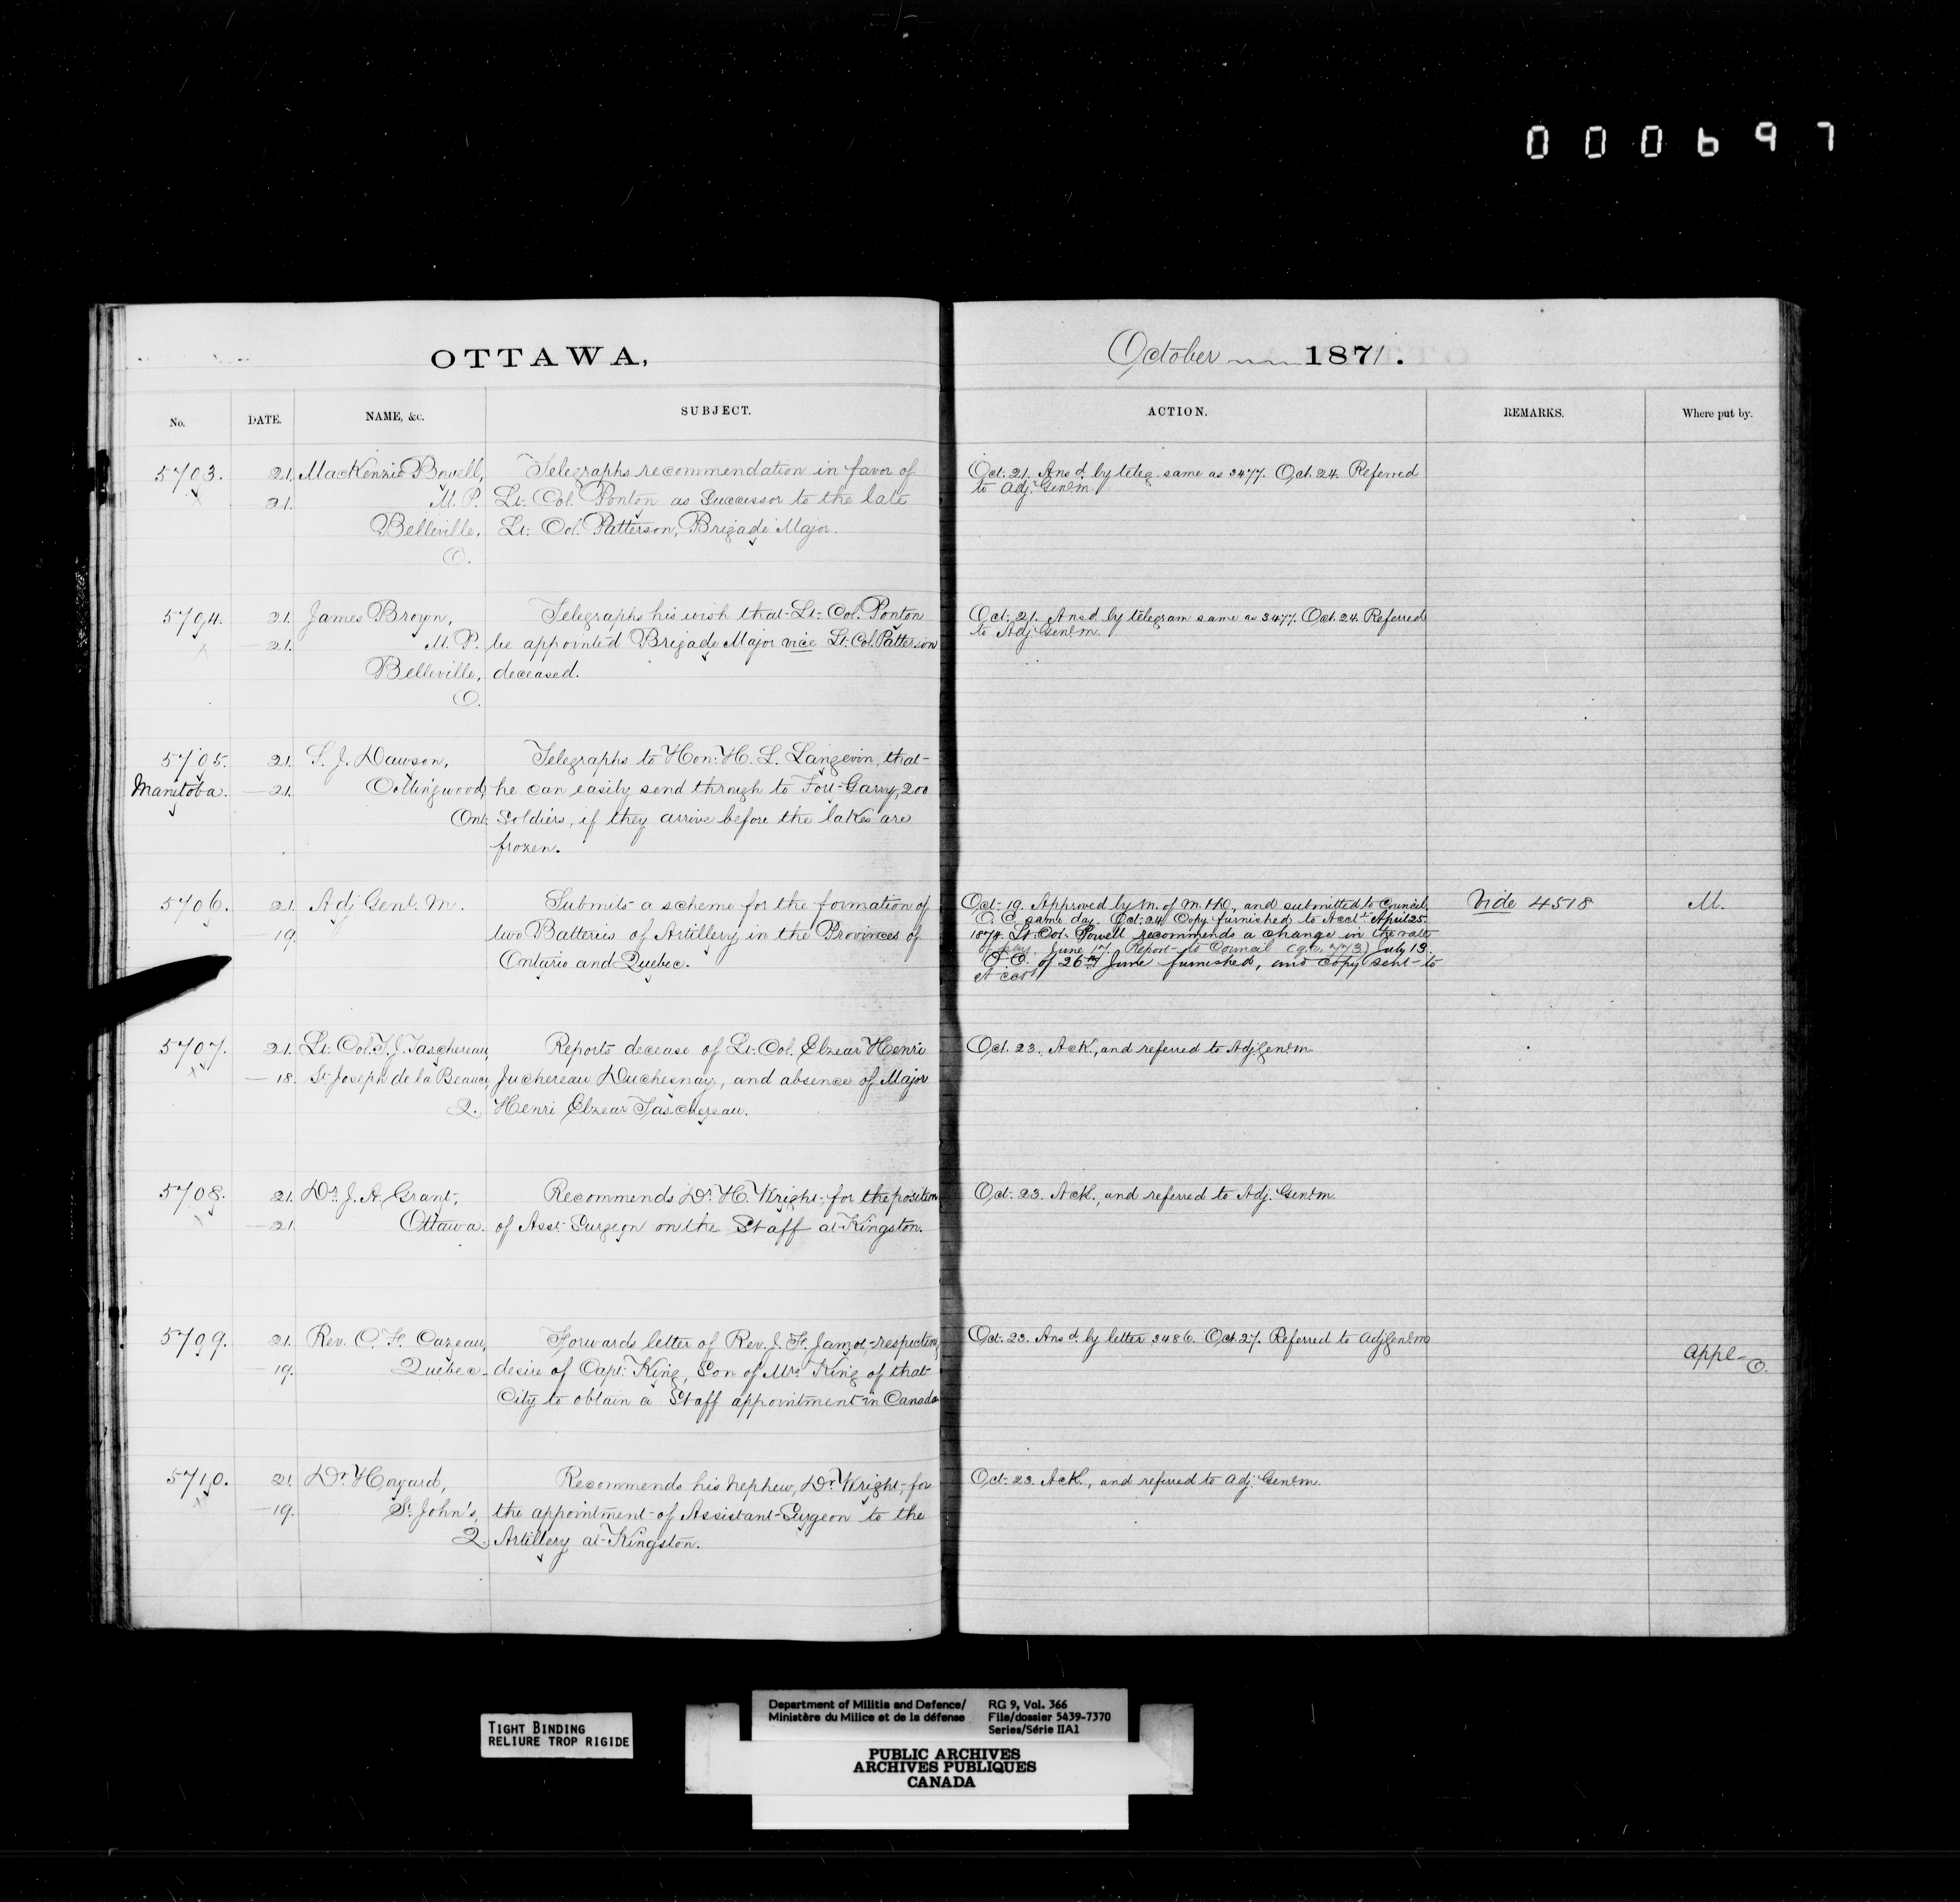 000697
OTTAWA,
October 1871.
No. DATE. NAME, &c. SUBJECT. ACTION. REMARKS. Where put by.
5703. 21. MacKenzie Bowell, Telegraphs recommendation in favor of
21. M.P. Lt. Col. Ponton as Successor to the late
Belleville, Lt. Col. Patterson, Brigade Major.
O.
Oct. 21. Ansd. by teleg. same as 3477. Oct. 24. Referred
to Adj. Genl. M.
5704. 21. James Brown, Telegraphs his wish that Lt. Col. Ponton
21. M.P. be appointed Brigade Major vice Lt. Col. Patterson
Belleville, deceased.
O.
Oct. 21. Ansd. by telegram same as 3477. Oct. 24. Referred
to Adj. Genl. M.
5705. 21. S. J. Dawson, Telegraphs to Hon. H. L. Langevin, that
Manitoba. 21. Collingwood, he can easily send through to Fort Garry, 200
Ont. Soldiers, if they arrive before the lakes are
frozen.
5706. 21. Adj. Genl. M. Submits a scheme for the formation of
19. two Batteries of Artillery in the Provinces of
Ontario and Quebec.
Oct. 19. Approved by M. of M. & D., and submitted to Council.
O. C. same day. Oct. 24 Copy furnished to Acct. April 25
1874. Lt. Col. Powell recommends a change in the rate
of pay. June 17. Report to Council (q.v. 773) July 13.
O. C. of 26th June furnished, and copy sent to
Acct.
Vide 4518
M.
5707. 21. Lt. Col. T. J. Taschereau, Reports decease of Lt. Col. Elzear Henri
18. St. Joseph de la Beauce, Juchereau Duchesnay, and absence of Major
Q. Henri Elzear Taschereau.
Oct. 23. Ack., and referred to Adj. Genl. M.
5708. 21. Dr. J. A. Grant, Recommends Dr. H. Wright, for the position
21. Ottawa. of Asst. Surgeon on the Staff at Kingston.
Oct. 23. Ack., and referred to Adj. Genl. M.
5709. 21. Rev. C. F. Cazeau, Forwards letter of Rev. J. F. Jamot, respecting
19. Quebec. desire of Capt. King, Son of Mrs. King of that
City to obtain a Staff appointment in Canada
Oct. 23. Ansd. by letter 3486. Oct. 27. Referred to Adj. Genl. M
Appl. O.
5710. 21. Dr. Howard, Recommends his nephew, Dr. Wright, for
19. St. John's, the appointment of Assistant Surgeon to the
Q. Artillery at Kingston.
Oct. 23. Ack., and referred to Adj. Genl. M.
TIGHT BINDING
RELIURE TROP RIGIDE
Department of Militia and Defence/
Ministère du Milice et de la défense
RG 9, Vol. 366
File/dossier 5439-7370
Series/Série IIA1
PUBLIC ARCHIVES
ARCHIVES PUBLIQUES
CANADA